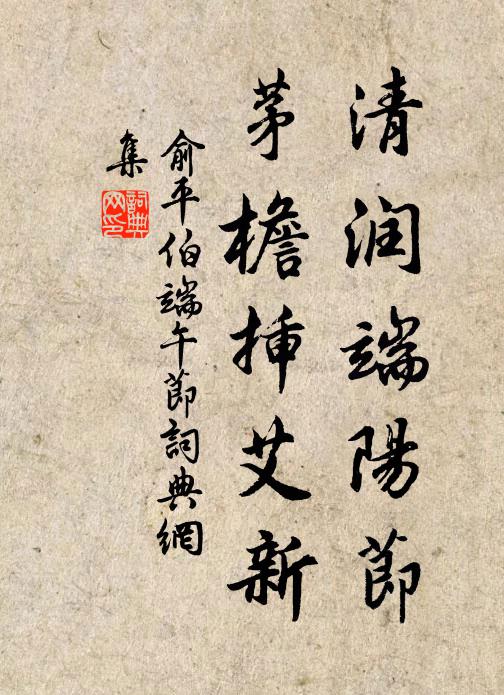 清润端陽節
茅檐插艾新
俞平伯端午節詞典網
集
詞典
网印